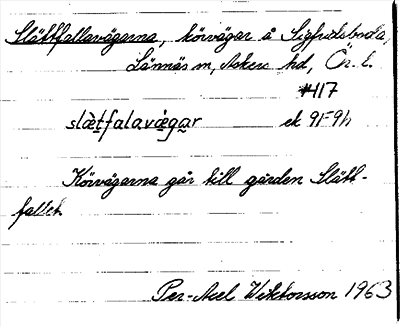 Slättfallavägarna, körvägar å Sigfridsboda,
Lännäs sn, Askers hd, Ör. l.
#417
slæ̀tfalavæ̀gar ek 9F9h
Körvägarna går till gården Slätt-
fallet.
Per-Axel Wiktorsson 1963